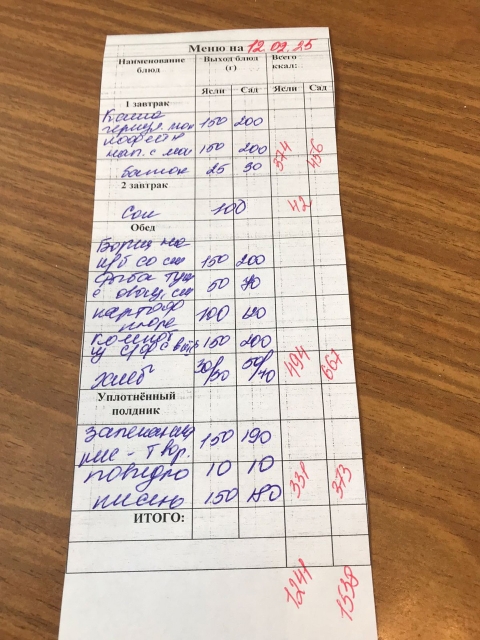 Меню на 12.02.25
Наименование блюд Выход блюд (г) Всего ккал:
Ясли Сад Ясли Сад
1 завтрак
Каша
геркул. мол 150 200
кофейн
нап. с мол 150 200 374 456
батон 25 30
2 завтрак
Сок 100 42
Обед
Борщ на
м/б со см 150 200
Рыба туш
с овощ, см 50 70
картоф
пюре 100 120
компот
из с/ф с вит 150 200
хлеб 30/30 50/40 494 667
Уплотнённый
полдник
запеканка
рис - твор. 150 190
повидло 10 10 331 373
кисель 150 180
ИТОГО:
1241 1538